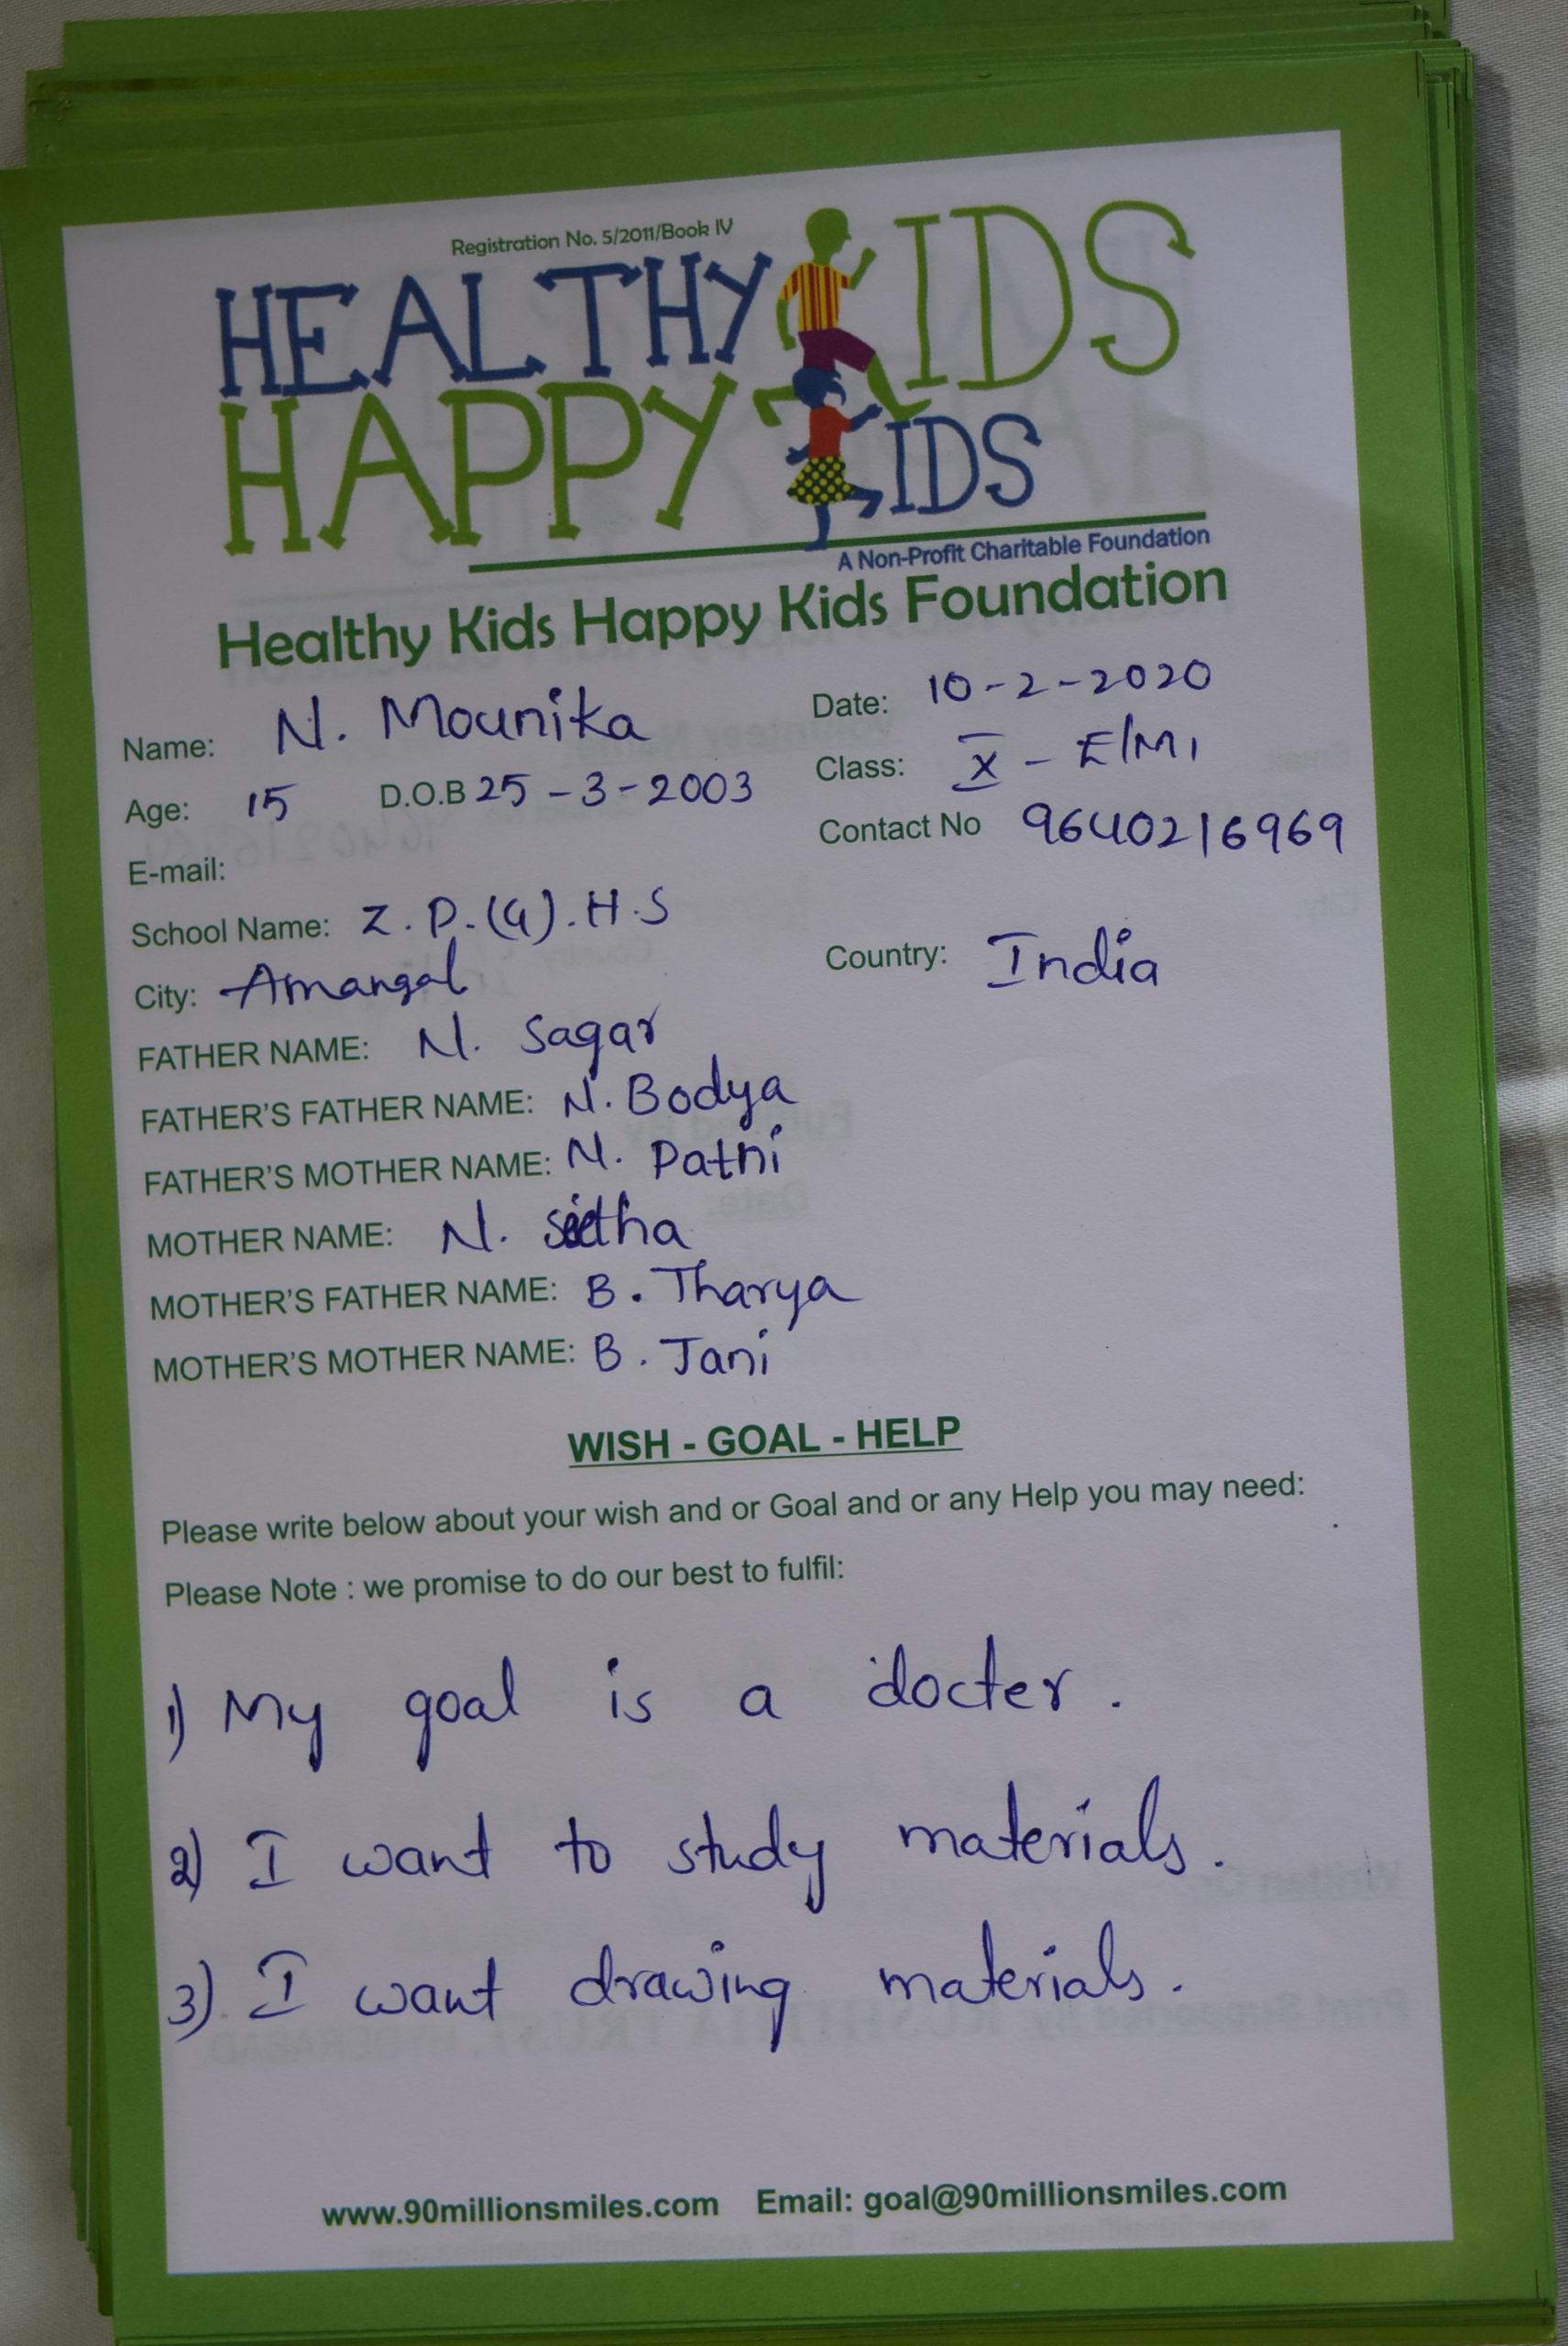 Registration No. 5/2011/Book IV
HEALTHY KIDS
HAPPY KIDS
A Non-Profit Charitable Foundation
Healthy Kids Happy Kids Foundation
Name: N. Mounika Date: 10-2-2020
Age: 15 D.O.B 25-3-2003 Class: X - E/M1
E-mail: Contact No 9640216969
School Name: Z.P.(G).H.S
City: Amangal Country: India
FATHER NAME: N. Sagar
FATHER'S FATHER NAME: N. Bodya
FATHER'S MOTHER NAME: N. Pathi
MOTHER NAME: N. seetha
MOTHER'S FATHER NAME: B. Tharya
MOTHER'S MOTHER NAME: B. Jani
WISH - GOAL - HELP
Please write below about your wish and or Goal and or any Help you may need:
Please Note : we promise to do our best to fulfil:
1) My goal is a docter.
2) I want to study materials.
3) I want drawing materials.
www.90millionsmiles.com Email: goal@90millionsmiles.com